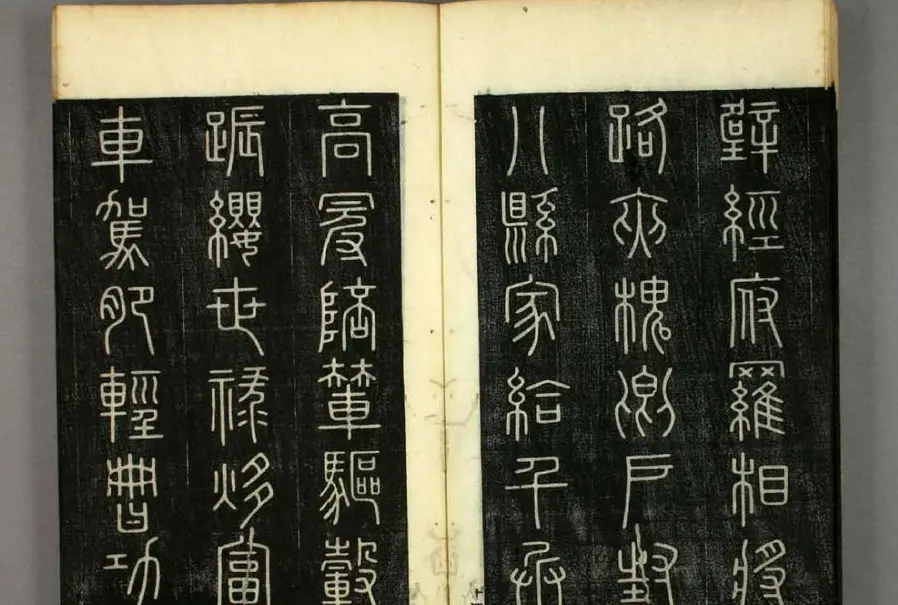 壁經府羅相將
路夾槐卿戶封
八縣家給千兵
高冠陪輦驅轂
振纓世祿侈富
車駕肥輕策功